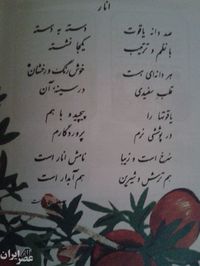 انار
صد دانه یاقوت دسته به دسته
با نظم و ترتیب یکجا نشسته
هر دانه‌ای هست خوش رنگ و رخشان
قلب سفیدی در سینهٔ آن
یاقوتها را پیچیده با هم
در پوششی نرم پروردگارم
سرخ است و زیبا نامش انار است
هم ترش و شیرین هم آبدار است
عصر ایران